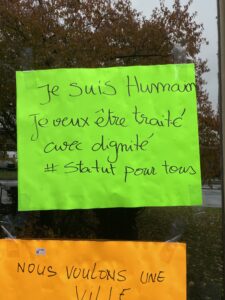 Je suis Humman
Je veux être traité
avec dignité
# Statut pour tous
NOUS VOULONS UNE
VILLE